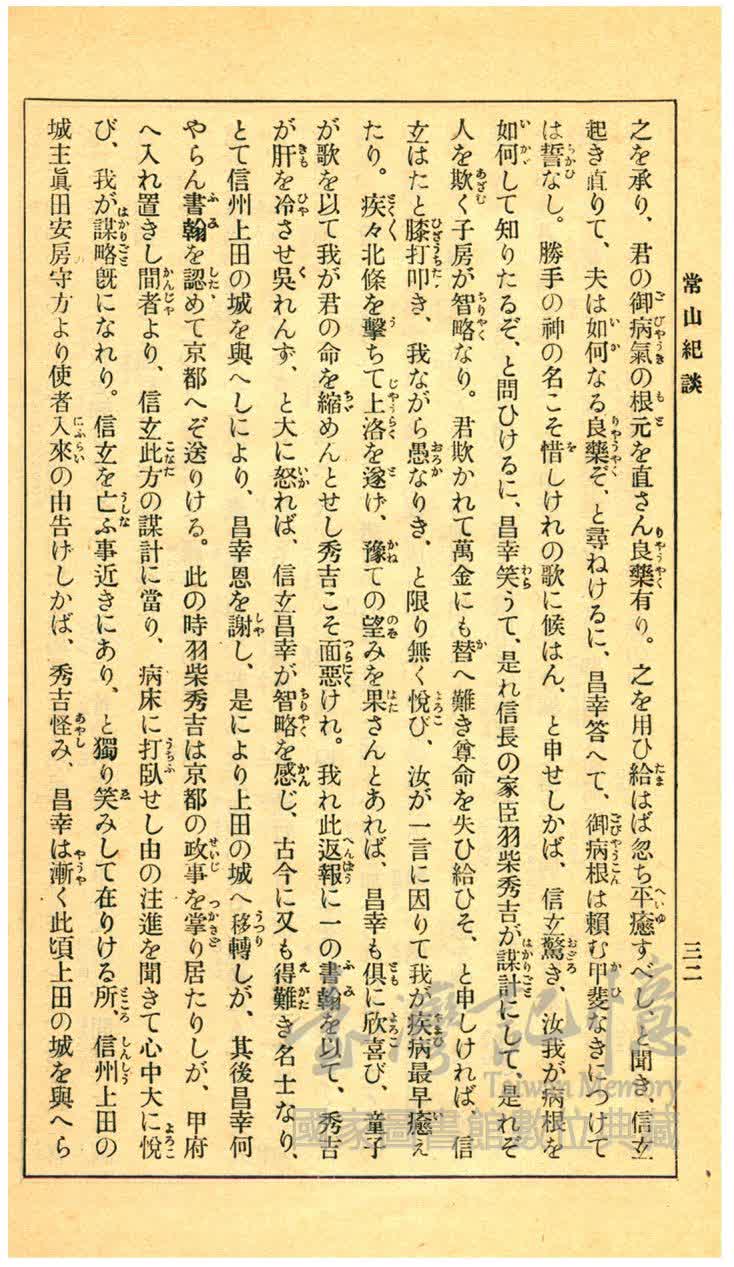 常山紀談
三二
之を承り、君の御病氣の根元を直さん良藥有り。之を用ひ給はば忽ち平癒すべし、と聞き、信玄
起き直りて、夫は如何なる良藥ぞ、と尋ねけるに、昌幸答へて、御病根は賴む甲斐なきにつけて
は誓なし。勝手の神の名こそ惜しけれの歌に候はん、と申せしかば、信玄驚き、汝我が病根を
如何して知りたるぞ、と問ひけるに、昌幸笑うて、是れ信長の家臣羽柴秀吉が謀計にして、是れぞ
人を欺く子房が智略なり。君欺かれて萬金にも替へ難き尊命を失ひ給ひそ、と申しければ、信
玄はたと膝打叩き、我ながら愚なりき、と限り無く悅び、汝が一言に因りて我が疾病最早癒え
たり。疾々北條を擊ちて上洛を遂け、豫ての望みを果さんとあれば、昌幸も俱に欣喜び、童子
が歌を以て我が君の命を縮めんとせし秀吉こそ面惡けれ。我れ此返報に一の書翰を以て、秀吉
が肝を冷させ吳れんず、と大に怒れば、信玄昌幸が智略を感じ、古今に又も得難き名士なり、
とて信州上田の城を與へしにより、昌幸恩を謝し、是により上田の城へ移轉しが、其後昌幸何
やらん書翰を認めて京都へぞ送りける。此の時羽柴秀吉は京都の政事を掌り居たりしが、甲府
へ入れ置きし間者より、信玄此方の謀計に當り、病床に打臥せし由の注進を聞きて心中大に悅
び、我が謀略旣になれり。信玄を亡ふ事近きにあり、と獨り笑みして在りける所、信州上田の
城主眞田安房守方より使者入來の由告げしかば、秀吉怪み、昌幸は漸く此頃上田の城を與へら
臺灣記憶
Taiwan Memory
國家圖書館數位典藏